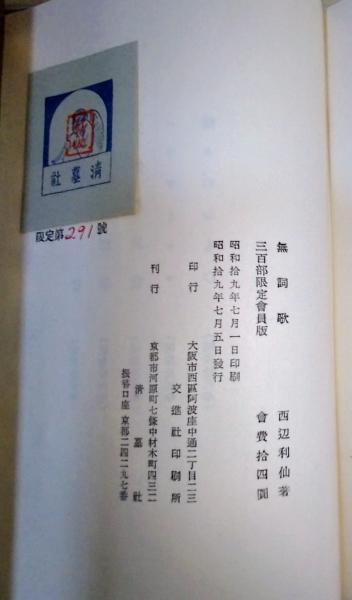 無詞歌 西辺利仙著
三百部限定會員版 會費拾四圓
昭和拾九年七月一日印刷
昭和拾九年七月五日發行
印行 大阪市西區阿波座中通二丁目二三
交進社印刷所
刊行 京都市河原町七條中材木町四三二
清墓社
振替口座京都二四二九七番
限定第291號
清墓社